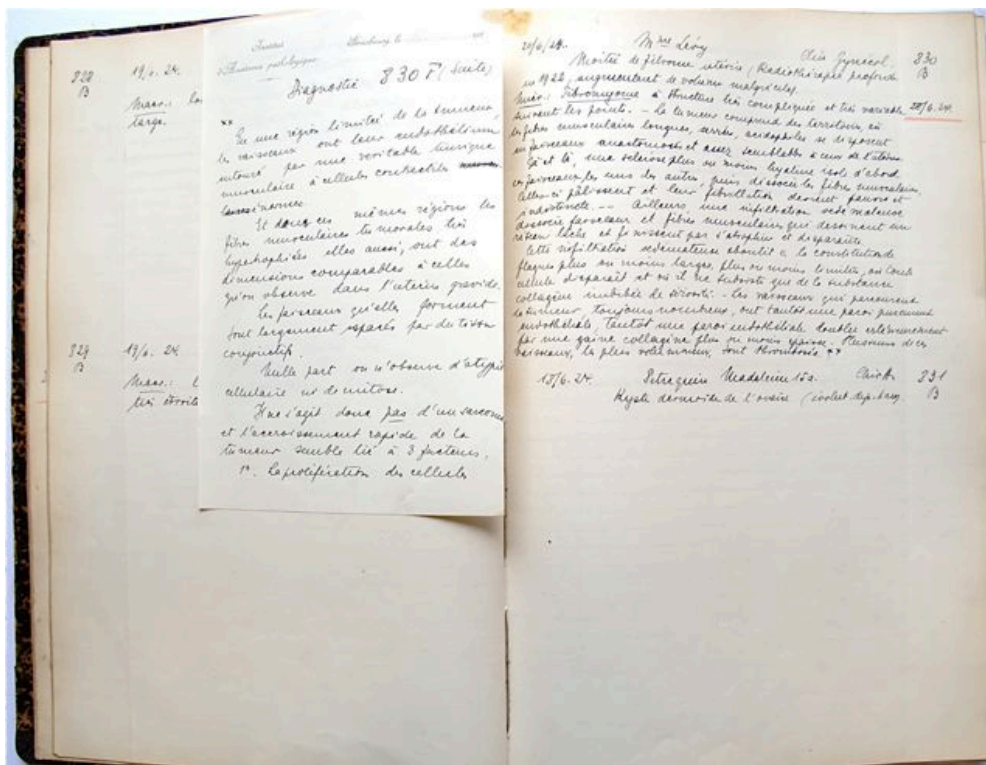 828
B
19/6. 24.
Macr.:
large.
829
B
19/6. 24.
Macr.:
très étroite
Institut
d'Anatomie pathologique
Strasbourg, le
Diagnostic 830 B (Suite)
**
En une région limitée de la tumeur,
les vaisseaux ont leur endothélium
entouré par une véritable tunique
musculaire à cellules contractiles
énormes.
Et dans ces mêmes régions les
fibres musculaires tumorales très
hypertrophiées elles aussi, ont des
dimensions comparables à celles
qu'on observe dans l'utérus gravide.
Les faisceaux qu'elles forment
sont largement séparés par du tissu
conjonctif.
Nulle part on n'observe d'atypie
cellulaire ni de mitose.
Il ne s'agit donc pas d'un sarcome
et l'accroissement rapide de la
tumeur semble lié à 3 facteurs.
1º. La prolifération des cellules
20/6/24. Mme Lévy Clin Gynécol. 830
B
Moitié de fibrome utérin (Radiothérapie profonde
en 1922, augmentant de volume malgré cela).
Micr.: Fibromyome à structure très compliquée et très variable 28/6.24.
suivant les points. — La tumeur comprend des territoires, où
les fibres musculaires longues, serrées, acidophiles se disposent
en faisceaux anastomosés et assez semblables à ceux de l'utérus.
Çà et là, une sclérose plus ou moins hyaline isole d'abord
ces faisceaux les uns des autres, puis dissocie les fibres musculaires.
Celles-ci pâlissent et leur fibrillation devient pauvre et
indistincte. — Ailleurs, une infiltration œdémateuse
dissocie faisceaux et fibres musculaires qui dessinent un
réseau lâche et finissent par s'atrophier et disparaître.
Cette infiltration œdémateuse aboutit à la constitution de
plaques plus ou moins larges, plus ou moins limitées, où toute
cellule disparaît et où il ne subsiste que de la substance
collagène imbibée de sérosité. — Les vaisseaux qui parcourent
la tumeur, toujours nombreux, ont tantôt une paroi purement
endothéliale, tantôt une paroi endothéliale doublée extérieurement
par une gaine collagène plus ou moins épaisse. Plusieurs de ces
vaisseaux, les plus volumineux, sont thrombosés **
13/6.24. Madeleine 15a. 831
B
Kyste dermoïde de l'ovaire